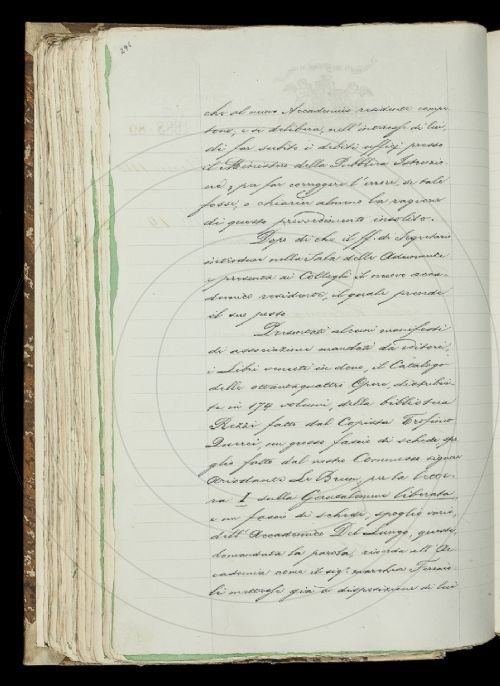 296
che al nuovo Accademico residente compe-
tono, e si delibera, nell'interesse di lui,
di far subito i debiti uffizi presso
il Ministro della Pubblica Istruzio-
ne, per far correggere l'errore, se tale
fosse, o chiarire almeno la ragione
di questo provvedimento insolito.
Dopo di che il ff. di Segretario
introduce nella Sala delle Adunanze
e presenta ai Colleghi il nuovo acca-
demico residente, il quale prende
il suo posto.
Presentati alcuni manifesti
di associazione mandati da editori,
i Libri venuti in dono, il Catalogo
delle ottantaquattro Opere, distribui-
te in 174 volumi, della biblioteca
Rezzi fatto dal Copista
un grosso fascio di schede spo-
glio fatto dal nostro Commesso signor
Ariodante Le Brun, per la lette-
ra I sulla Gerusalemme liberata,
e un fascio di schede, spoglio vario,
dell'Accademico Del Lungo, questi,
domandata la parola, ricorda all'Ac-
cademia come il sig.
li mettesse già a disposizione di lui